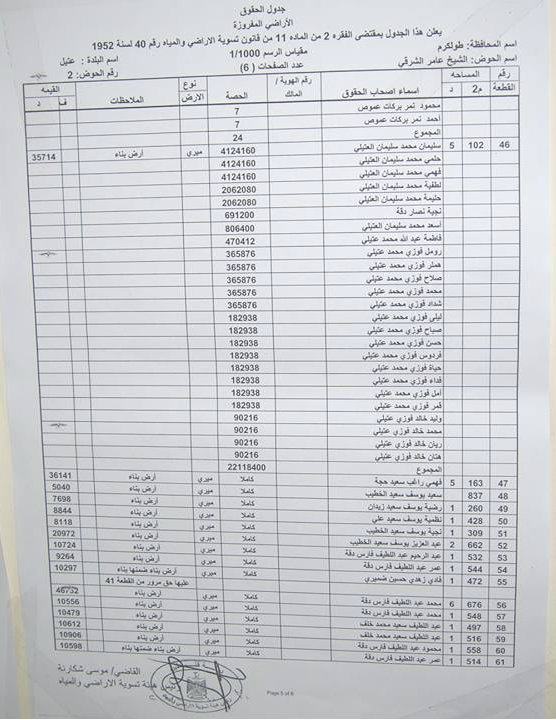 جدول الحقوق
الأراضي المفروزة
يعلن هذا الجدول بمقتضى الفقره 2 من الماده 11 من قانون تسوية الاراضي والمياه رقم 40 لسنة 1952
اسم المحافظة: طولكرم مقياس الرسم 1/1000 اسم البلدة : عتيل
اسم الحوض: الشيخ عامر الشرقي عدد الصفحات ( 6 ) رقم الحوض: 2
رقم القطعة المساحه م2 د اسماء اصحاب الحقوق رقم الهوية / المالك الحصة نوع الارض الملاحظات القيمه ف د
محمود نمر بركات عموص 7
احمد نمر بركات عموص 7
المجموع 24
46 102 5 سليمان محمد سليمان العتيلي 4124160 ميري أرض بناء 35714
حلمي محمد سليمان العتيلي 4124160
فهمي محمد سليمان العتيلي 4124160
لطفية محمد سليمان العتيلي 2062080
حليمة محمد سليمان العتيلي 2062080
نجية نصار دقة 691200
أسعد محمد سليمان العتيلي 806400
فاطمة عبد الله محمد عتيلي 470412
رومل فوزي محمد عتيلي 365876
هملر فوزي محمد عتيلي 365876
صلاح فوزي محمد عتيلي 365876
محمد فوزي محمد عتيلي 365876
شداد فوزي محمد عتيلي 365876
ليلى فوزي محمد عتيلي 182938
صباح فوزي محمد عتيلي 182938
حسن فوزي محمد عتيلي 182938
فردوس فوزي محمد عتيلي 182938
حياة فوزي محمد عتيلي 182938
فداء فوزي محمد عتيلي 182938
أمل فوزي محمد عتيلي 182938
قمر فوزي محمد عتيلي 182938
وليد خالد فوزي عتيلي 90216
محمد خالد فوزي عتيلي 90216
ريان خالد فوزي عتيلي 90216
هتان خالد فوزي عتيلي 90216
المجموع 22118400
47 163 5 فهمي راغب سعيد حجة كاملا ميري أرض بناء 36141
48 837 سعيد يوسف سعيد الخطيب كاملا ميري أرض بناء 5040
49 260 1 رضية يوسف سعيد زيدان كاملا ميري أرض بناء 7698
50 428 1 نظمية يوسف سعيد علي كاملا ميري أرض بناء 8844
51 309 1 نجية يوسف سعيد الخطيب كاملا ميري أرض بناء 8118
52 662 2 عبد العزيز يوسف سعيد الخطيب كاملا ميري أرض بناء 20972
53 532 1 عبد الرحيم عبد اللطيف فارس دقة كاملا ميري أرض بناء 10724
54 544 1 عمر عبد اللطيف فارس دقة كاملا ميري أرض بناء 9264
55 472 1 فادي زهدي حسين ضميري كاملا ميري أرض بناء ضمنها بناء 10297
عليها حق مرور من القطعة 41
56 676 6 محمد عبد اللطيف فارس دقة كاملا ميري أرض بناء 46732
57 548 1 محمد عبد اللطيف فارس دقة كاملا ميري أرض بناء 10556
58 497 1 عبد اللطيف سعيد محمد خلف كاملا ميري أرض بناء 10479
59 516 1 عبد اللطيف سعيد محمد خلف كاملا ميري أرض بناء 10612
60 558 1 محمود عبد اللطيف فارس دقة كاملا ميري أرض بناء 10906
61 514 1 عمر عبد اللطيف فارس دقة كاملا ميري أرض بناء ضمنها بناء 10598
القاضي/ موسى شكارنة
رئيس هيئة تسوية الاراضي والمياه
Page 5 of 6